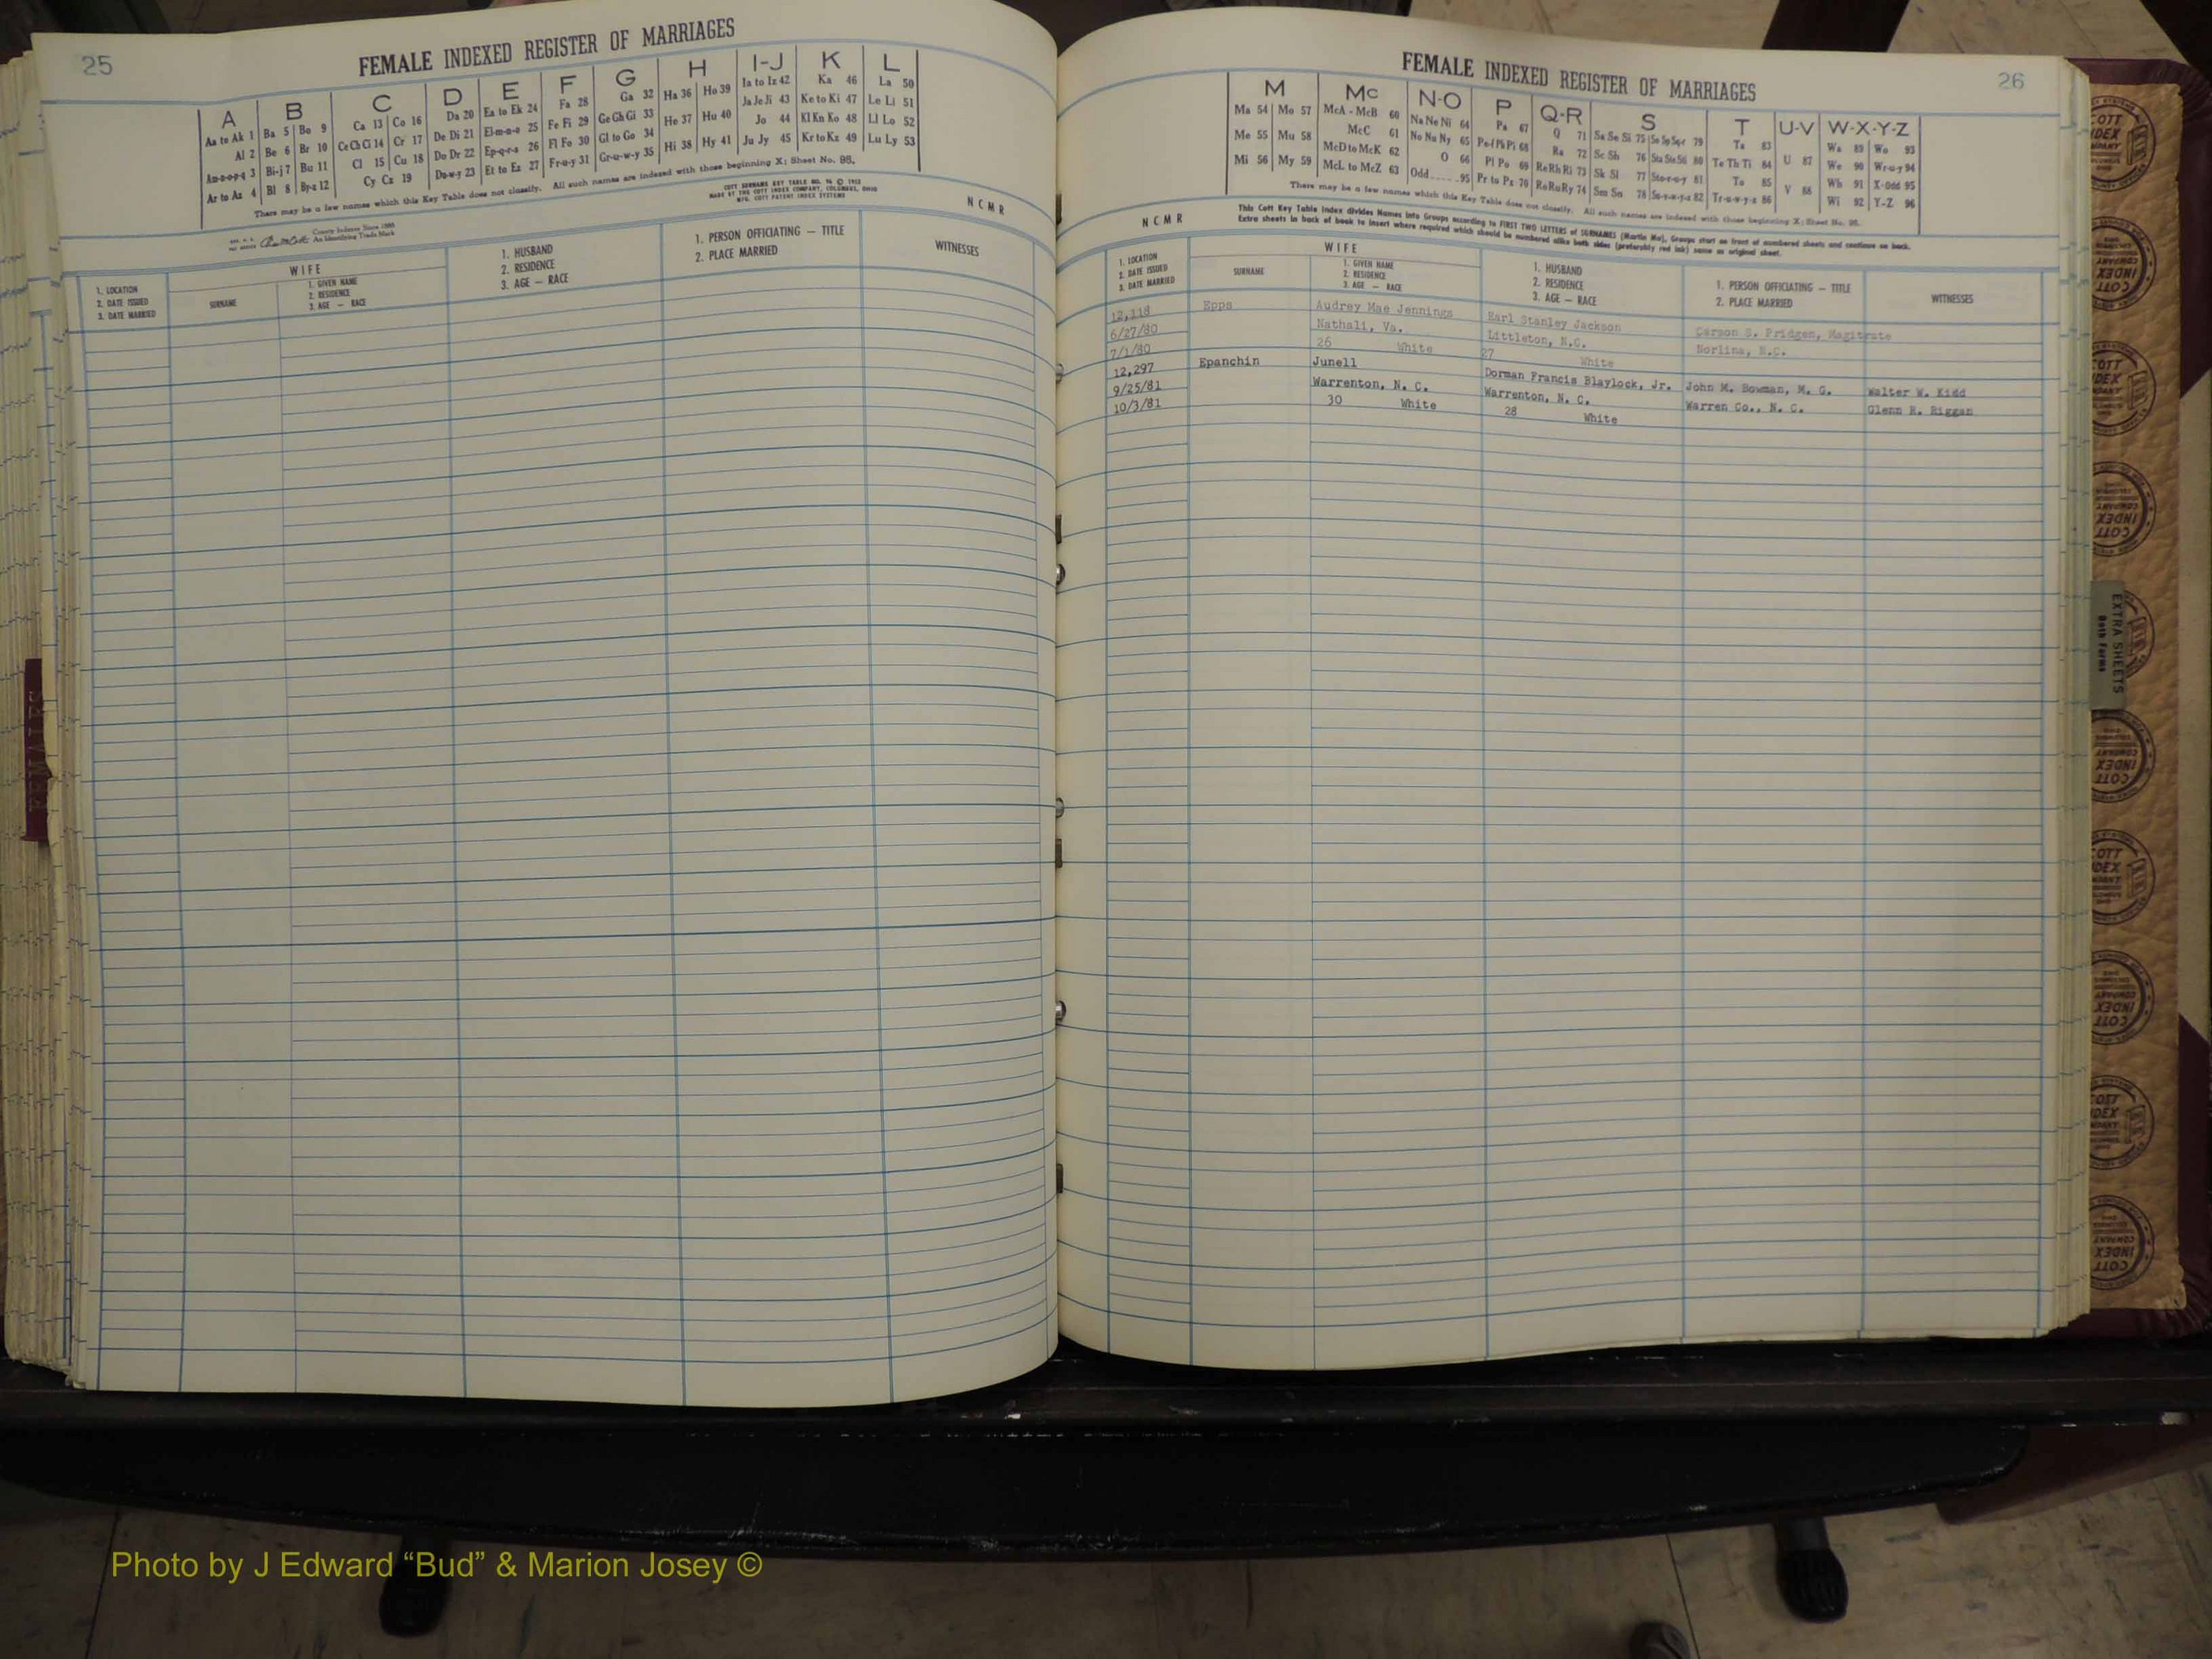 25
FEMALE INDEXED REGISTER OF MARRIAGES
A B C D E F G H I-J K L
Aa to Ak 1 Ba 5 Bo 9 Ca 13 Co 16 Da 20 Ea to Ek 24 Fa 28 Ga 32 Ha 36 Ho 39 Ia to Iz 42 Ka 46 La 50
Al 2 Be 6 Br 10 Ce Ch Ci 14 Cr 17 De Di 21 El-m-n-o 25 Fe Fi 29 Ge Gh Gi 33 He 37 Hu 40 Ja Je Ji 43 Ke to Ki 47 Le Li 51
Am-n-o-p-q 3 Bi-j 7 Bu 11 Cl 15 Cu 18 Do Dr 22 Ep-q-r-s 26 Fl Fo 30 Gl to Go 34 Hi 38 Hy 41 Jo 44 Kl Kn Ko 48 Ll Lo 52
Ar to Az 4 Bl 8 By-z 12 Cy Cz 19 Du-w-y 23 Et to Ez 27 Fr-u-y 31 Gr-u-w-y 35 Ju Jy 45 Kr to Kz 49 Lu Ly 53
There may be a few names which this Key Table does not classify. All such names are indexed with those beginning X; Sheet No. 95.
COTT SURNAME KEY TABLE NO. 96 © 1952
MADE BY THE COTT INDEX COMPANY, COLUMBUS, OHIO
MFG. COTT PATENT INDEX SYSTEMS
County Indexes Since 1888
An Identifying Trade Mark
NCMR
1. LOCATION
2. DATE ISSUED
3. DATE MARRIED
WIFE
SURNAME
1. GIVEN NAME
2. RESIDENCE
3. AGE — RACE
1. HUSBAND
2. RESIDENCE
3. AGE — RACE
1. PERSON OFFICIATING — TITLE
2. PLACE MARRIED
WITNESSES
FEMALE INDEXED REGISTER OF MARRIAGES
26
M Mc N-O P Q-R S T U-V W-X-Y-Z
Ma 54 Mo 57 McA - McB 60 Na Ne Ni 64 Pa 67 Q 71 Sa Se Si 75 79 Ta 83 Wa 89 Wo 93
Me 55 Mu 58 McC 61 No Nu Ny 65 Pe-f Ph Pi 68 Ra 72 Sc Sh 76 80 Te Th Ti 84 U 87 We 90 Wr-u-y 94
Mi 56 My 59 McD to McK 62 O 66 Pl Po 69 Re Rh Ri 73 Sk Sl 77 Sto-r-u-y 81 To 85 V 88 Wh 91 X-Odd 95
McL to McZ 63 Odd 95 Pr to Pz 70 Ro Ru Ry 74 Sm Sn 78 82 Tr-u-w-y-z 86 Wi 92 Y-Z 96
There may be a few names which this Key Table does not classify. All such names are indexed with those beginning X; Sheet No. 95.
This Cott Key Table Index divides Names into Groups according to FIRST TWO LETTERS of SURNAMES (Martin Ma), Groups start on front of numbered sheets and continue on back.
Extra sheets in back of book to insert where required which should be numbered alike both sides (preferably red ink) same as original sheet.
NCMR
1. LOCATION
2. DATE ISSUED
3. DATE MARRIED
WIFE
SURNAME
1. GIVEN NAME
2. RESIDENCE
3. AGE — RACE
1. HUSBAND
2. RESIDENCE
3. AGE — RACE
1. PERSON OFFICIATING — TITLE
2. PLACE MARRIED
WITNESSES
12,118 Epps Audrey Mae Jennings Earl Stanley Jackson Carson S. Pridgen, Magitrate
6/27/80 Nathali, Va. Littleton, N.C. Norlina, N.C.
7/1/80 26 White 27 White
12,297 Epanchin Junell Dorman Francis Blaylock, Jr. John M. Bowman, M. G. Walter W. Kidd
9/25/81 Warrenton, N. C. Warrenton, N. C. Warren Co., N. C. Glenn R. Riggan
10/3/81 30 White 28 White
EXTRA SHEETS
Both Forms
COTT
INDEX
COMPANY
Photo by J Edward “Bud” & Marion Josey ©